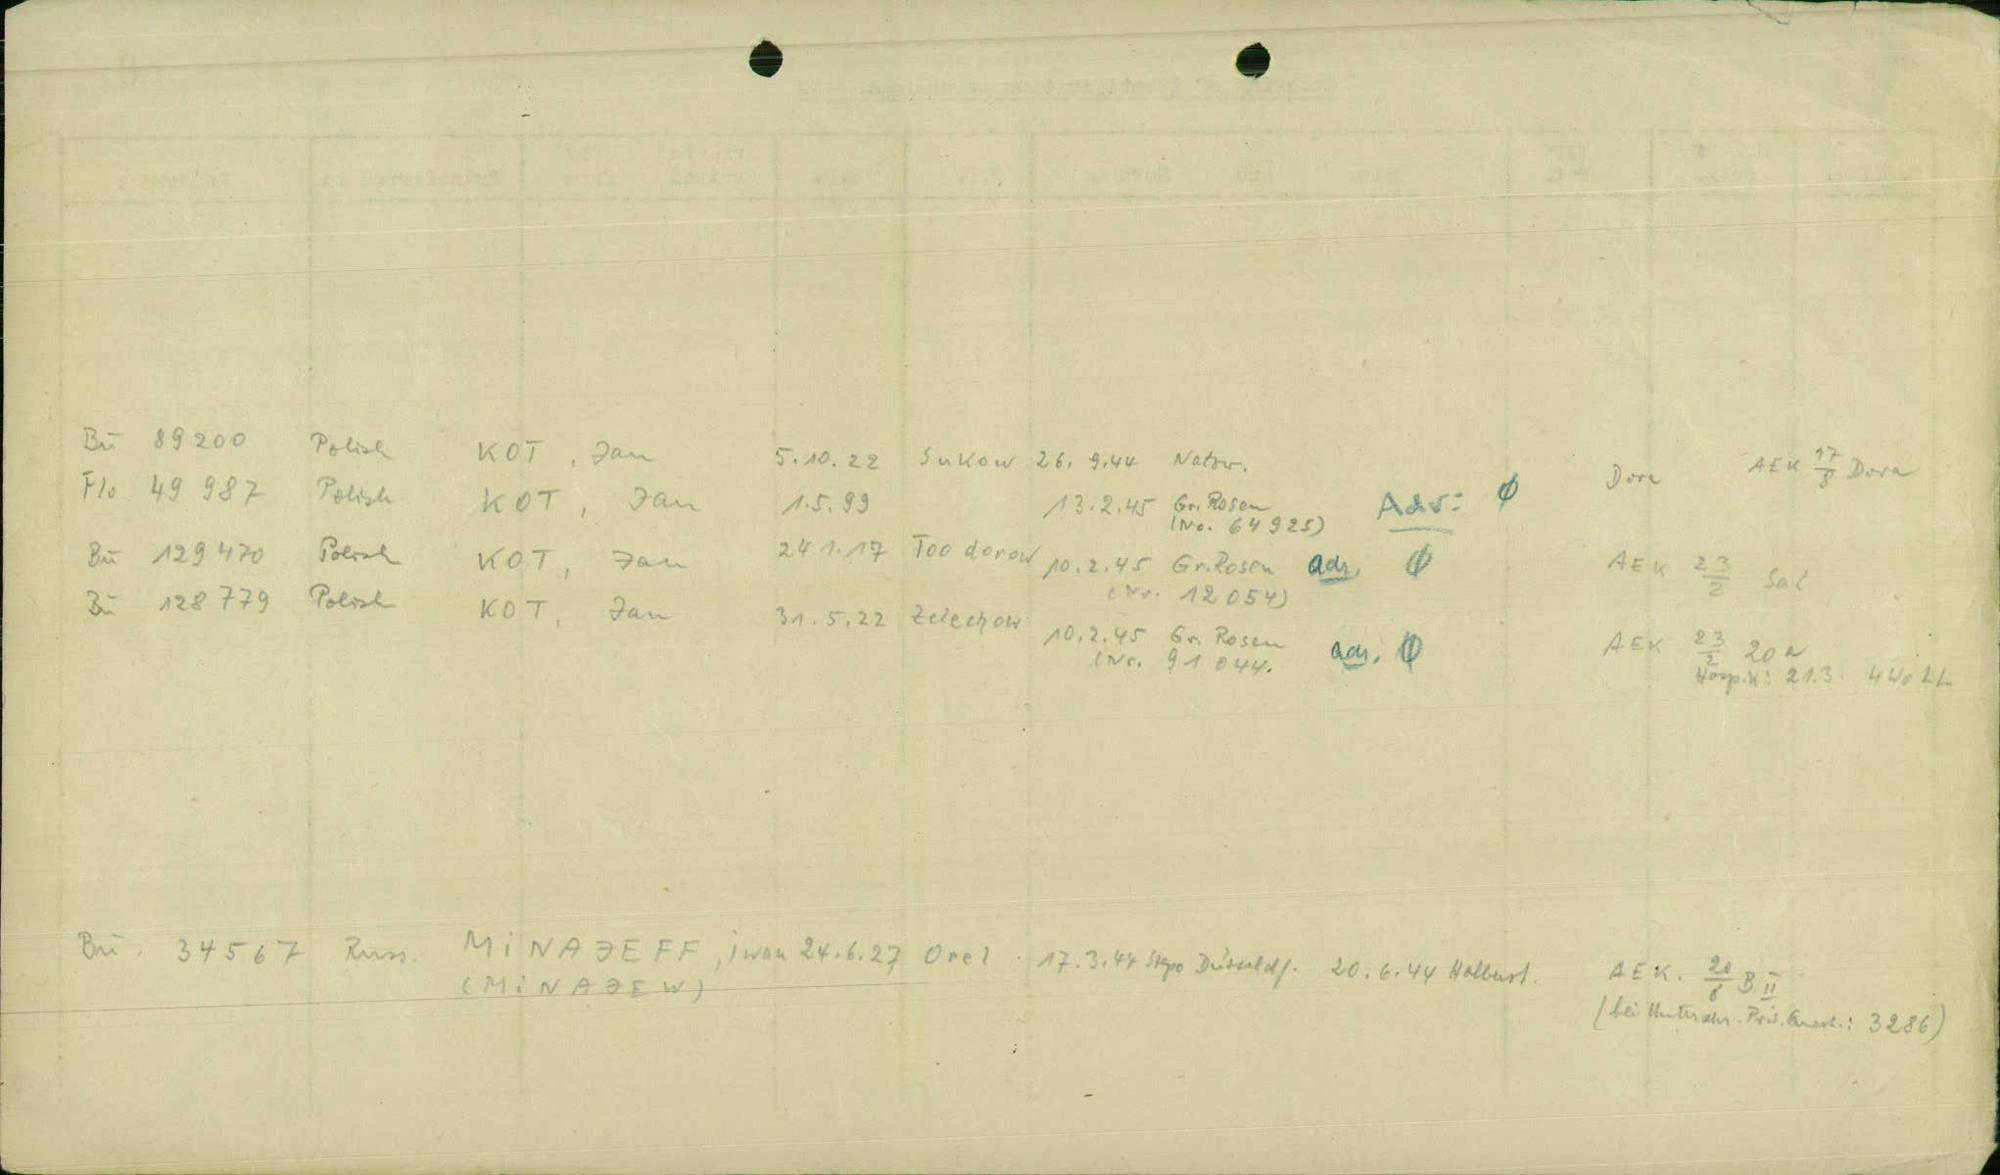 Bū 89200 Polish KOT, Jan 5.10.22 Sukow 26.9.44 Natzw. Dora AEK 17/8 Dora
Flo 49 987 Polish KOT, Jan 1.5.99 13.2.45 Gr. Rosen Adr: ∅
(No. 64925)
Bū 129470 Polish KOT, Jan 24.1.17 Toodorow 10.2.45 Gr. Rosen adr. ∅ AEK 23/2 Sal
(Nr. 12054)
Bū 128779 Polish KOT, Jan 31.5.22 Zelechow 10.2.45 Gr. Rosen adr. ∅ AEK 23/2 20a
(Nr. 91044. Hosp.K: 21.3.
Bū. 34567 Russ. MINAJEFF, iwan 24.6.27 Orel. 17.3.44 Stapo Düsseldf. 20.6.44 Halberst. AEK. 20/6 B II
(MINAJEW) (bei : 3286)